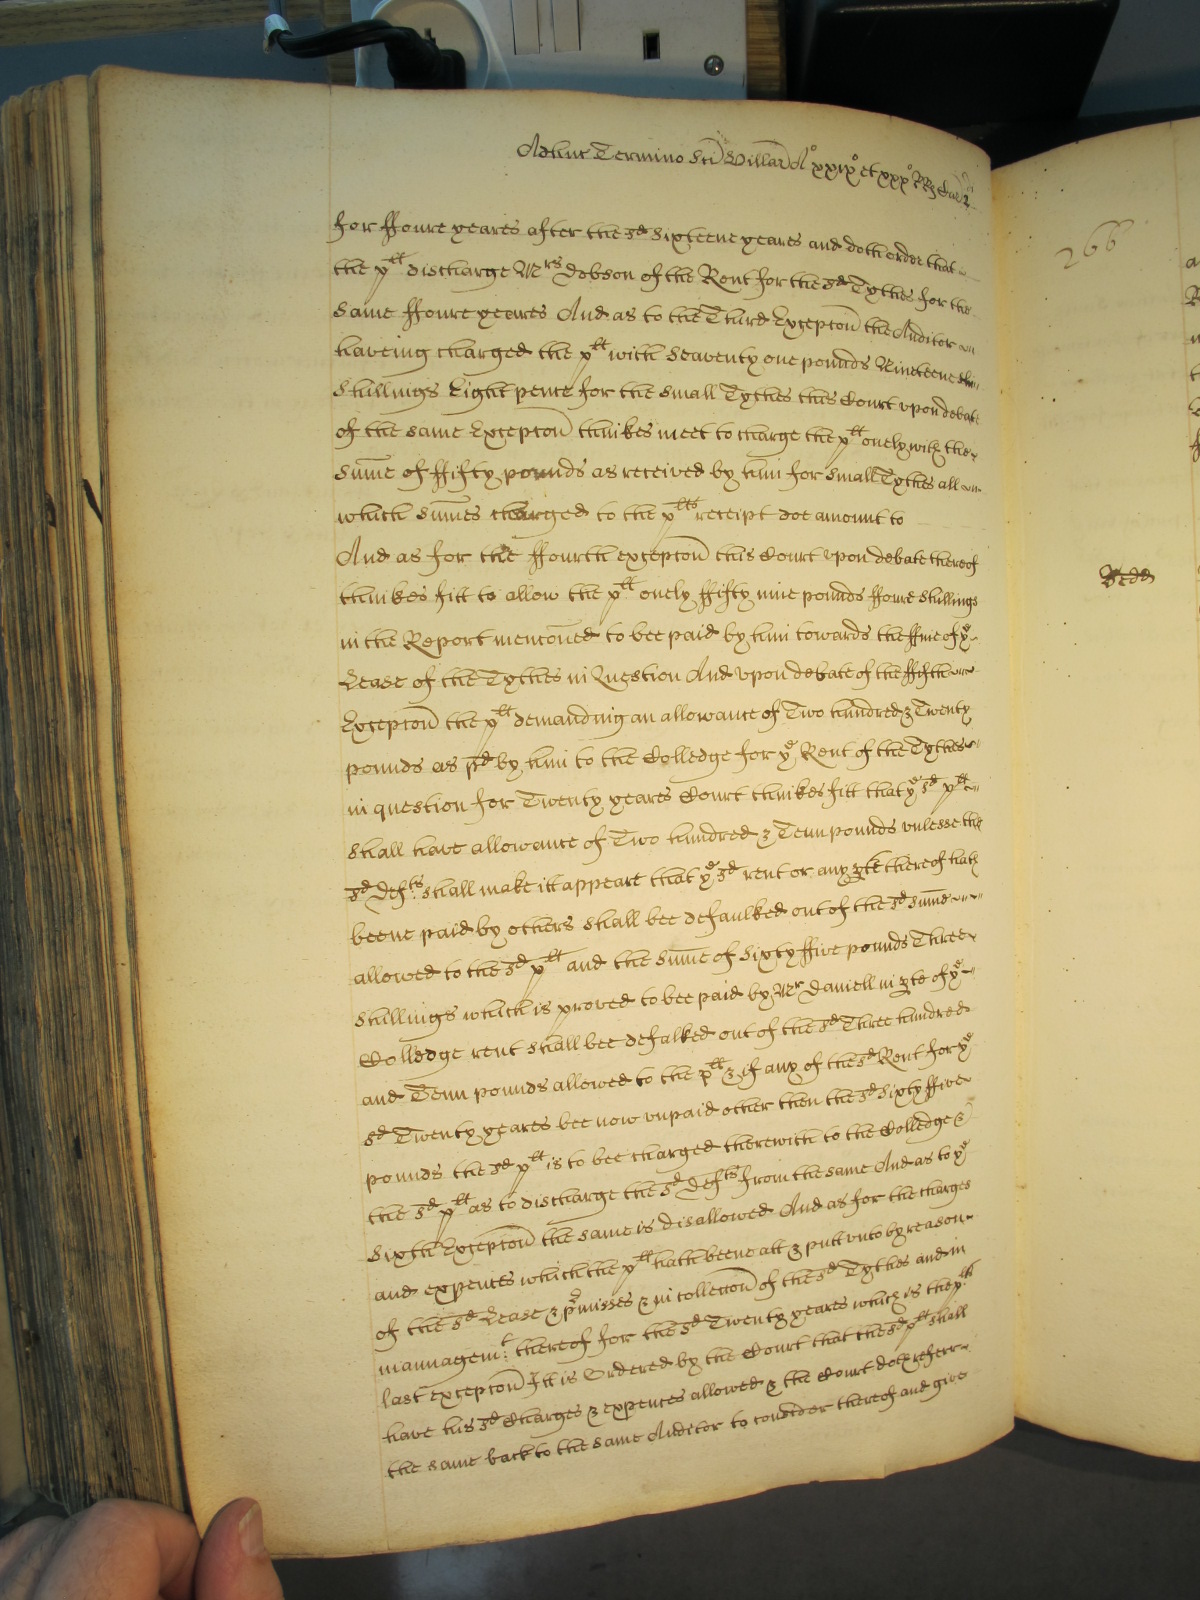 Adhuc Termino Sci Hillarii Ao xxixo et xxxo RRs Car 2
for ffoure yeares after the sd Sixteene yeares and doth order that
the plt discharge Mrs Dobson of the Rent for the sd Tythes for the
same ffoure yeares And as to the Third Excepton the Auditor
haveing charged the plt with Seaventy one pounds Nineteene
Shillings Eight pence for the small Tythes this Court upon debate
of the same Excepton thinkes meet to charge the plt onely with the
Sume of ffifty pounds as received by him for small Tythes all
which Sumes charged to the plts receipt doe amount to
And as for the ffourth excepton this Court upon debate thereof
thinkes fitt to allow the plt onely ffifty nine pounds ffoure shillings
in the Report mentoned to bee paid by him towards the ffine of ye
Lease of the Tythes in Question And upon debate of the ffifth
Excepton the plt demanding an allowance of Two hundred & Twenty
pounds as pd by him to the Colledge for ye Rent of the Tythes
in question for Twenty yeares Court thinkes fitt that ye sd plt
shall have allowance of Two hundred & Tenn pounds unlesse the
sd Defts shall make itt appeare that ye sd rent or any pte thereof hath
beene paid by others shall bee defaulked out of the sd sume
allowed to the sd plt and the sume of Sixty ffive pounds Three
Shillings which is proved to bee paid by Mr Daniell in pte of ye
Colledge rent shall bee defalked out of the sd Three hundred
and Tenn pounds allowed to the plt & if any of the sd Rent for ye
sd Twenty yeares bee now unpaid other then the sd Sixty ffive
pounds the sd plt is to bee charged therewith to the Colledge &
the sd plt as to discharge the sd Defts from the same And as to ye
Sixth Excepton the same is disallowed And as for the charges
and expences which the plt hath beene att & putt unto by reason
of the sd Lease & pmisses & in collecton of the sd Tythes and in
mannagemt thereof for the sd Twenty yeares which is the plts
last excepton Itt is Ordered by the Court that the sd plt shall
have his sd Charges & expences allowed & the Court doth referr
the same back to the same Auditor to consider thereof and give
266